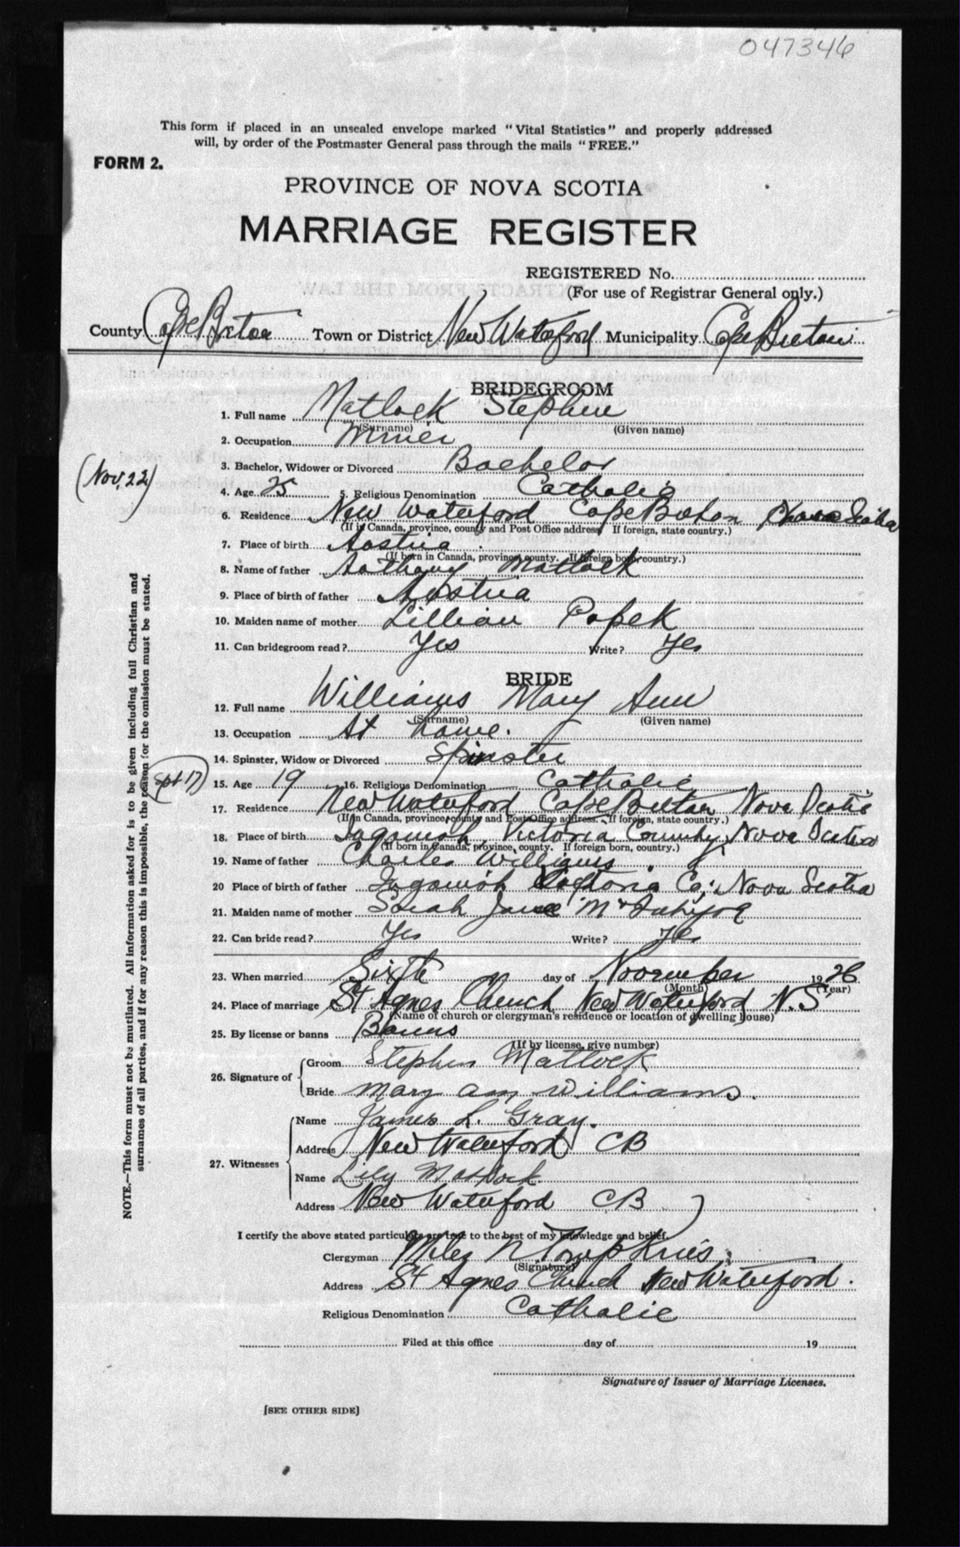 047346
This form if placed in an unsealed envelope marked "Vital Statistics" and properly addressed
will, by order of the Postmaster General pass through the mails "FREE."
FORM 2.
PROVINCE OF NOVA SCOTIA
MARRIAGE REGISTER
REGISTERED No.
(For use of Registrar General only.)
County Cape Breton Town or District New Waterford Municipality Cape Breton
BRIDEGROOM
1. Full name Matlock Stephen
(Surname) (Given name)
2. Occupation Miner
3. Bachelor, Widower or Divorced Bachelor
(Nov. 22)
4. Age 25 5. Religious Denomination Catholic
6. Residence New Waterford Cape Breton Nova Scotia
(If in Canada, province, county and Post Office address. If foreign, state country.)
7. Place of birth Aostria
(If born in Canada, province, county. If foreign born, country.)
8. Name of father Anthony Matlock
9. Place of birth of father Aostria
10. Maiden name of mother Lillian Popek
11. Can bridegroom read? Yes Write? Yes
BRIDE
12. Full name Williams Mary Ann
(Surname) (Given name)
13. Occupation At home.
14. Spinster, Widow or Divorced Spinster
(Sept 17)
15. Age 19 16. Religious Denomination Catholic
17. Residence New Waterford Cape Breton Nova Scotia
(If in Canada, province, county and Post Office address. If foreign, state country.)
18. Place of birth Ingonish Victoria County, Nova Scotia
(If born in Canada, province, county. If foreign born, country.)
19. Name of father Charles Williams
20 Place of birth of father Ingonish Victoria Co; Nova Scotia
21. Maiden name of mother Sarah Jane
22. Can bride read? Yes Write? Yes
23. When married Sixth day of November 1926
(Month) (Year)
24. Place of marriage St Agnes Church New Waterford N.S
(Name of church or clergyman's residence or location of dwelling house)
25. By license or banns Banns
(If by license, give number)
26. Signature of
Groom Stephen Matlock
Bride mary ann williams.
27. Witnesses
Name James L. Gray.
Address New Waterford CB
Name Lily Matlock
Address New Waterford CB
I certify the above stated particulars are true to the best of my knowledge and belief.
Clergyman Miles N Tompkins
(Signature)
Address St Agnes Church New Waterford.
Religious Denomination Catholic
Filed at this office day of 19
Signature of Issuer of Marriage Licenses.
[SEE OTHER SIDE]
NOTE.—This form must not be mutilated. All information asked for is to be given including full Christian and
surnames of all parties, and if for any reason this is impossible, the reason for the omission must be stated.